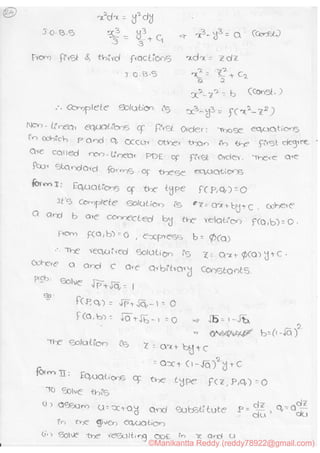 24
x²dx = y²dy
I.O.B.S x³/3 = y³/3 + C₁ ⇒ x³-y³ = a (const)
From first & third fractions xdx = zdz
I.O.B.S x²/2 = z²/2 + C₂
x²-z² = b (const.)
∴ Complete solution is x³-y³ = f(x²-z²)
Non-linear equations of first order: Those equations
in which p and q occur other than in the first degree
are called non-linear PDE of first order. There are
four standard forms of these equations
form I: Equations of the type f(p,q)=0
It's complete solution is z=ax+by+c, where
a and b are connected by the relation f(a,b)=0.
From f(a,b)=0, express b = ϕ(a)
∴ The required solution is z = ax+ϕ(a)y+c.
where a and c are arbitrary constants
Prob: Solve √p+√q = 1
Sol: f(p,q) = √p+√q-1 = 0
f(a,b) = √a+√b-1 = 0 ⇒ √b = 1-√a
b=(1-√a)²
The solution is z = ax+by+c
= ax+(1-√a)²y+c
form II: Equations of the type f(z,p,q)=0
To solve this
(i) assum u=x+ay and substitute p=dz/du, q=a dz/du
in the given equation
(ii) Solve the resulting ODE in z and u
©Manikantta Reddy (reddy78922@gmail.com)